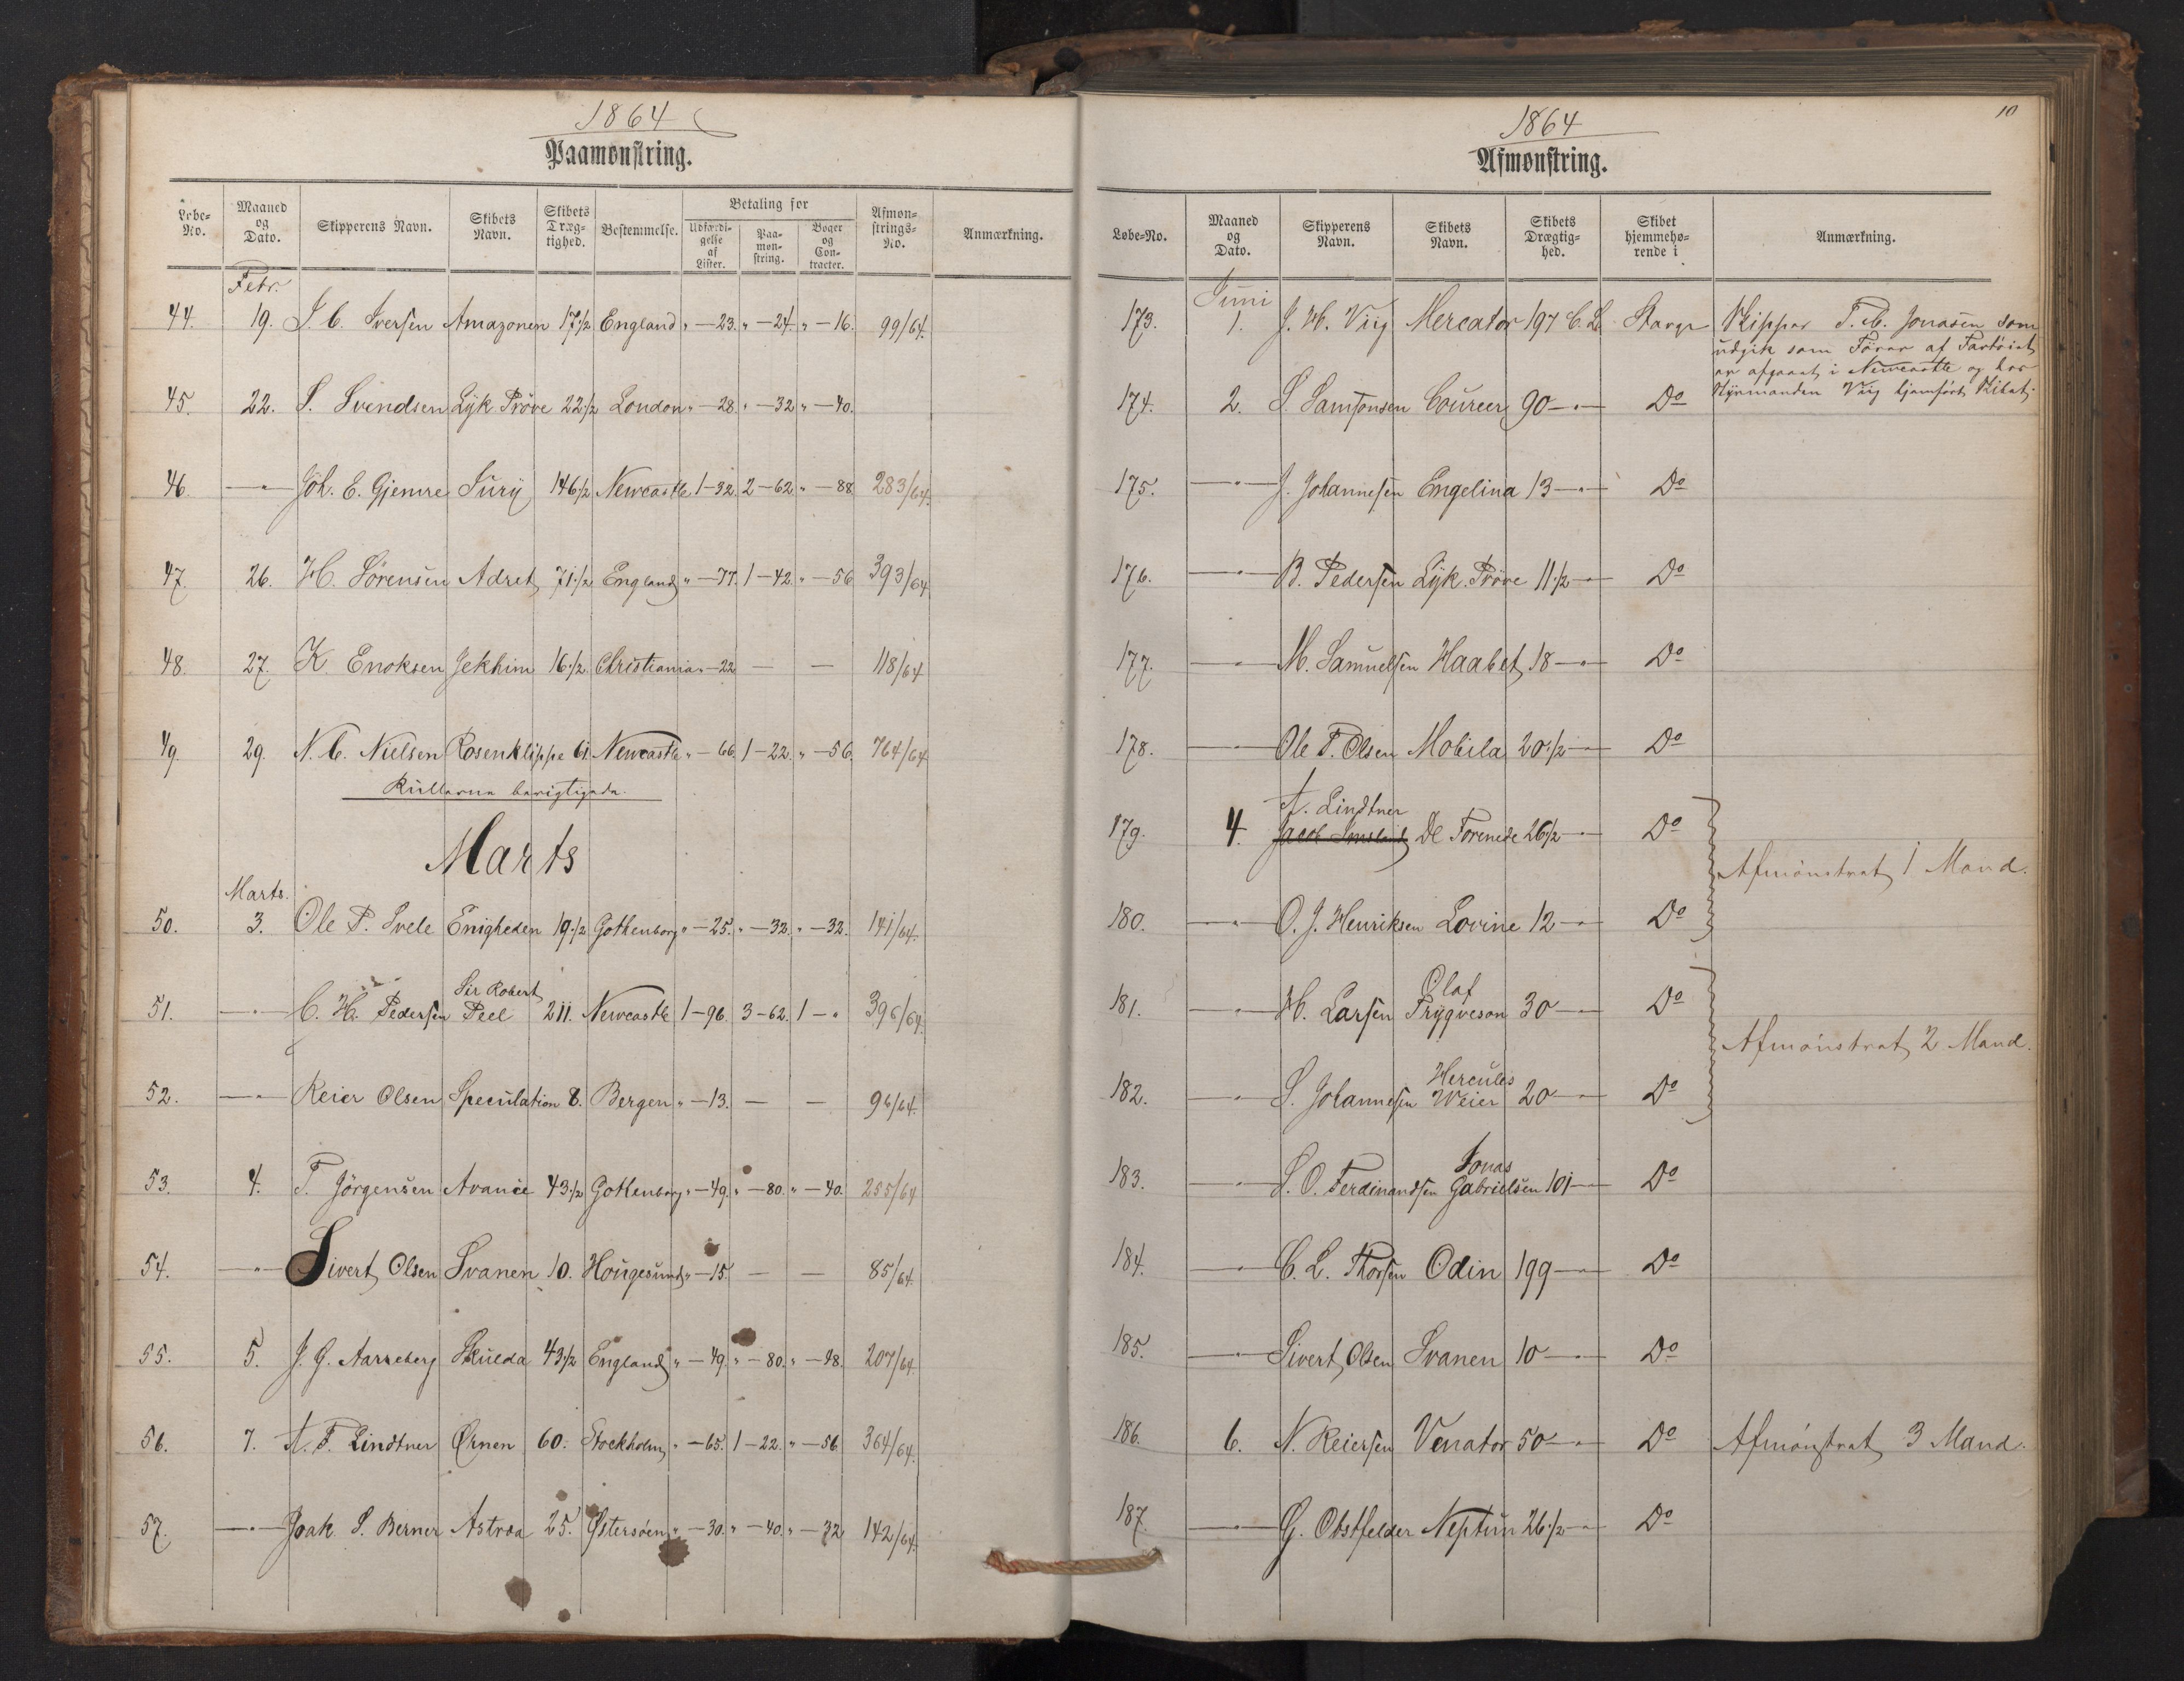 1864
Paamønstring.
Løbe-No. Maaned og Dato. Skipperens Navn. Skibets Navn. Skibets Dræg-tighed. Bestemmelse. Betaling for Udfærdi-gelse af Lister. Paa-møn-string. Bøger og Con-tracter. Afmøn-strings-No. Anmærkning.
Febr.
44. 19. J. C. Iversen Amazonen 17 1/2 England " — 23. " — 24. " — 16. 99/64.
45. 22. S. Svendsen Lyk. Prøve 22 1/2 London " — 28. " — 32 " — 40.
46. — " — Joh. E. Gjemre Sury 146 1/2 Newcastle 1 — 32. 2 — 62. " — 88 283/64.
47. 26. H. Sørensen Adret 71 1/2 England " — 77. 1 — 42. " — 56 393/64
48. 27. K. Enoksen Jekhim 16 1/2 Christiania " — 22 — — 118/64
49. 29. N. C. Nielsen Rosenklippe 61. Newcastle " — 66. 1 — 22. " — 56. 764/64
Rullerne berigtigede.
Marts
Marts.
50. 3. Ole P. Svele Enigheden 19 1/2 Gothenborg " — 25. " — 32. " — 32. 141/64.
51. — " — C. H. Pedersen Sir Robert Peel 211. Newcastle 1 — 96. 3 — 62. 1 — " 396/64.
52. — " — Reier Olsen Speculation 8. Bergen " — 13. — — 96/64.
53. 4. T. Jörgensen Avance 43 1/2 Gothenborg " — 49. " — 80. " — 40. 255/64
54. — " — Sivert Olsen Svanen 10. Hougesund " — 15. — — 85/64.
55. 5. J. G. Aarreberg Skulda 43 1/2 England " — 49. " — 80. " — 48. 207/64.
56. 7. A. F. Lindtner Ørnen 60. Stockholm " — 65. 1 — 22. " — 56 364/64.
57. — " — Joak S. Berner Astræa 25. Østersøen " — 30. " — 40. " — 32 142/64.
10
1864
Afmønstring.
Løbe-No. Maaned og Dato. Skipperens Navn. Skibets Navn. Skibets Drægtig-hed. Skibet hjemmehø-rende i Anmærkning.
Juni
173. 1. J. H. Viig Mercator 197 C. L. Stavgr Skipper T. C. Jonasen som
udgik som Fører af Fartøiet
er afgaaet i Newcastle og har
Styrmanden Viig hjemført Skibet.
174. 2. S. Samsonsen Coureer 90 — " — Do
175. — " — J. Johannesen Engelina 13 — " — Do
176. — " — B. Pedersen Lyk. Prøve 11 1/2 — " — Do
177. — " — M. Samuelsen Haabet 18 — " — Do
178. — " — Ole T. Olsen Mobila 20 1/2 — " — Do
A. Lindtner
179. 4. Jacob Imsland De Forenede 26 1/2 — " — Do
Afmönstret 1 Mand.
180. — " — O. J. Henriksen Lovine 12 — " — Do
181. — " — H. Larsen Olaf Trygveson 30 — " — Do
Afmönstret 2 Mand.
182. — " — S. Johannesen Hercules Weier 20 — " — Do
183. — " — S. O. Ferdinandsen Jonas Gabrielsen 101 — " — Do
184. — " — C. L. Thorsen Odin 199 — " — Do
185. — " — Sivert Olsen Svanen 10 — " — Do
186. 6. N. Reiersen Venator 50 — " — Do Afmönstret 3 Mand.
187. — " — G. Obstfelder Neptun 26 1/2 — " — Do